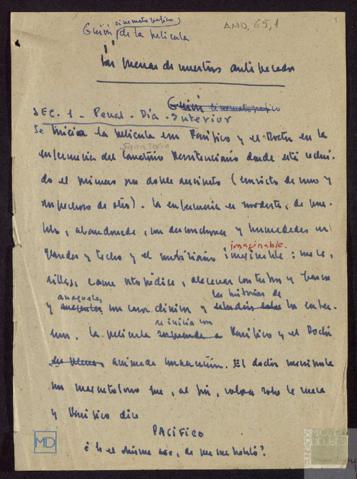 cinematográfico
AMD, 65,1
Guión de la película
"Las guerras de nuestros antepasados
Guión cinematográfico
SEC. 1 - Penal - Día - Interior
Se inicia la película con Pacífico y el Doctor en la
enfermería del Sanatorio Penitenciario donde está recluido
do el primero por doble delito (convicto de uno y
sospechoso de otro). La enfermería es modesta, de
abandonada, con desconchones y humedades en
imaginable
paredes y techo y el mobiliario : mesa,
sillas, cama
anaqueles las historias de
y con clínicos y los enfer-
se inicia con
mos. La película Pacífico y el Doctor
en animada conversación. El doctor manipula
un magnetofono que, al fin, coloca sobre la mesa
y Pacífico dice
PACÍFICO
¿Es el chisme ese, de que me habló?
MD